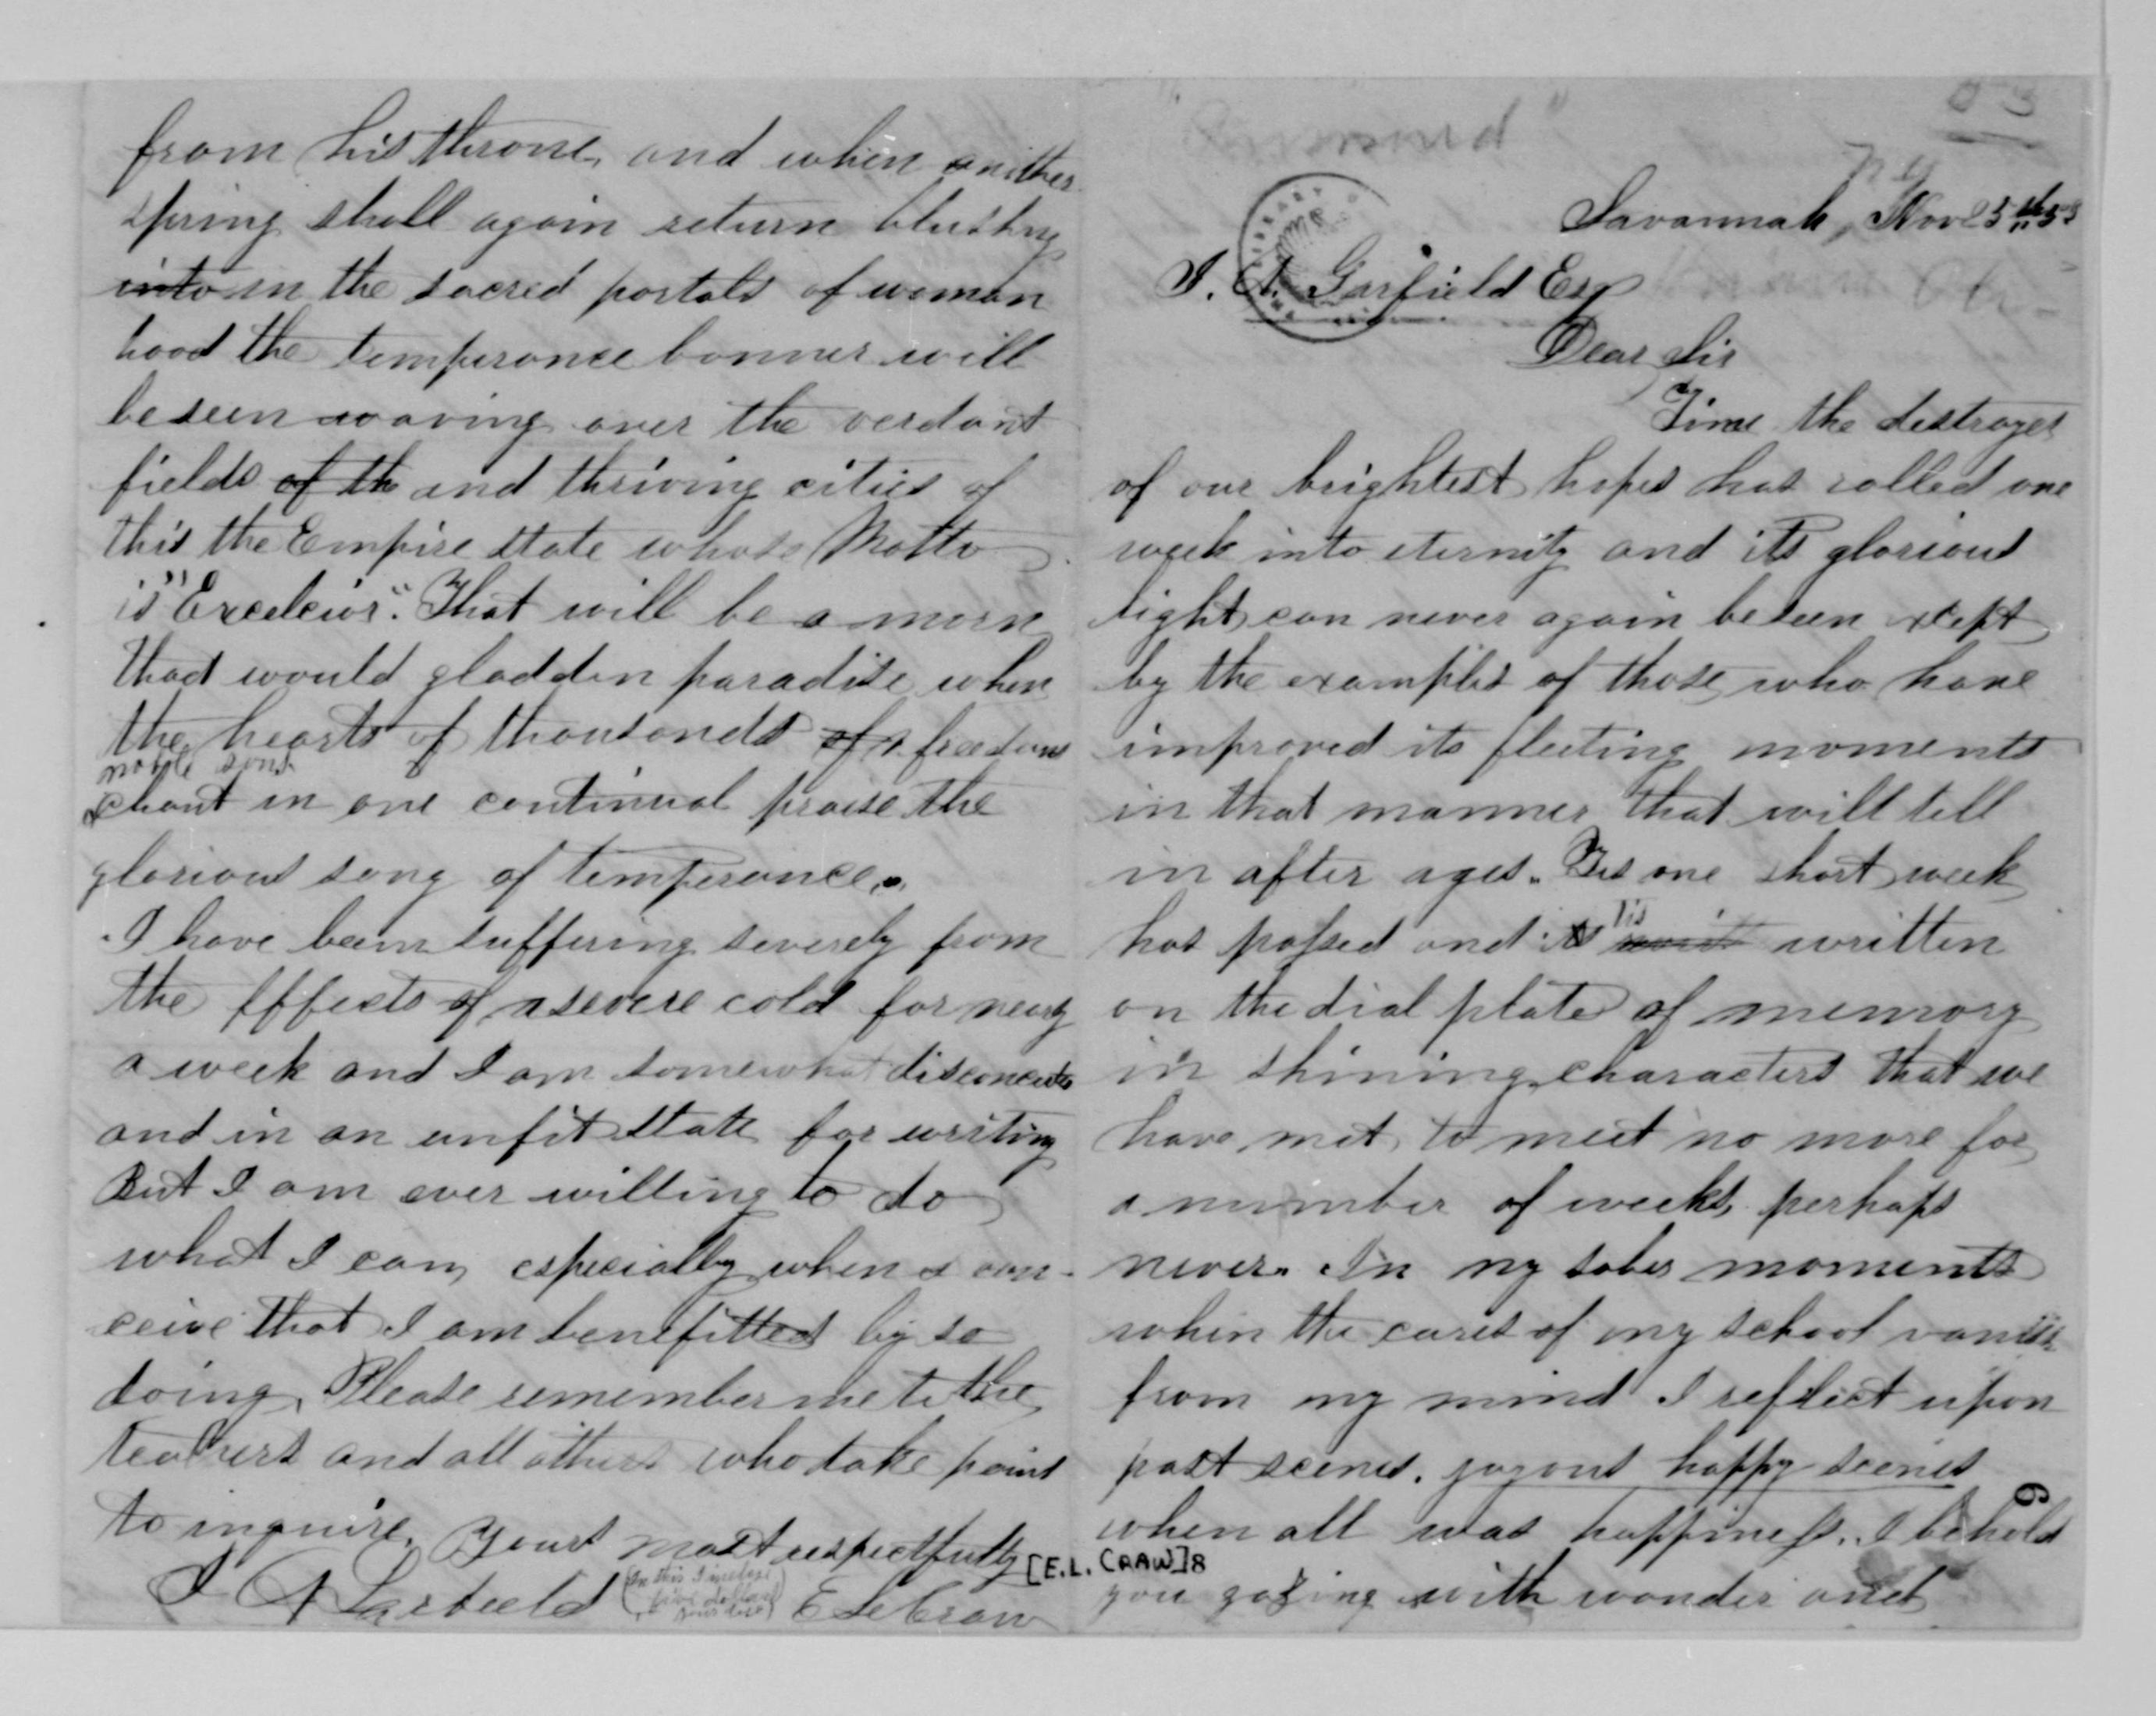 Savannah, Nov 25th 53
J. A. Garfield Esq
Dear Sir
Time the destroyer
of our brightest hopes has rolled one
week into eternity and its glorious
light can never again be seen except
by the examples of those who have
improved its fleeting moments
in that manner that will tell
in after ages. Yes one short week
has passed and tis written
on the dial plate of memory
in shining characters that we
have met, to meet no more for
a number of weeks, perhaps
never. In my sober moments
when the cares of my school vanish
from my mind I reflect upon
past scenes. joyous happy scenes
when all was happiness. I behold
you gazing with wonder and
6
from his throne, and when another
spring shall again return blushing
into in the sacred portals of woman
hood the temperance banner will
be seen waving over the verdant
fields of th and thriving cities of
this the Empire state whose Motto
is "Excelcior". That will be a morn
that would gladden paradise when
the hearts of thousands of freedoms
noble sons
chant in one continual praise the
glorious song of temperance.
I have been suffering severely from
the effects of a severe cold for nearly
a week and I am somewhat
and in an unfit state for writing
But I am ever willing to do
what I can, especially when I con-
ceive that I am benefitted by so
doing. Please remember me to the
teachers and all others who take pains
to inquire. Yours most respectfully
[E.L. CRAW]8
J A Garfield (In this I inclose
five dollars
) E L Craw